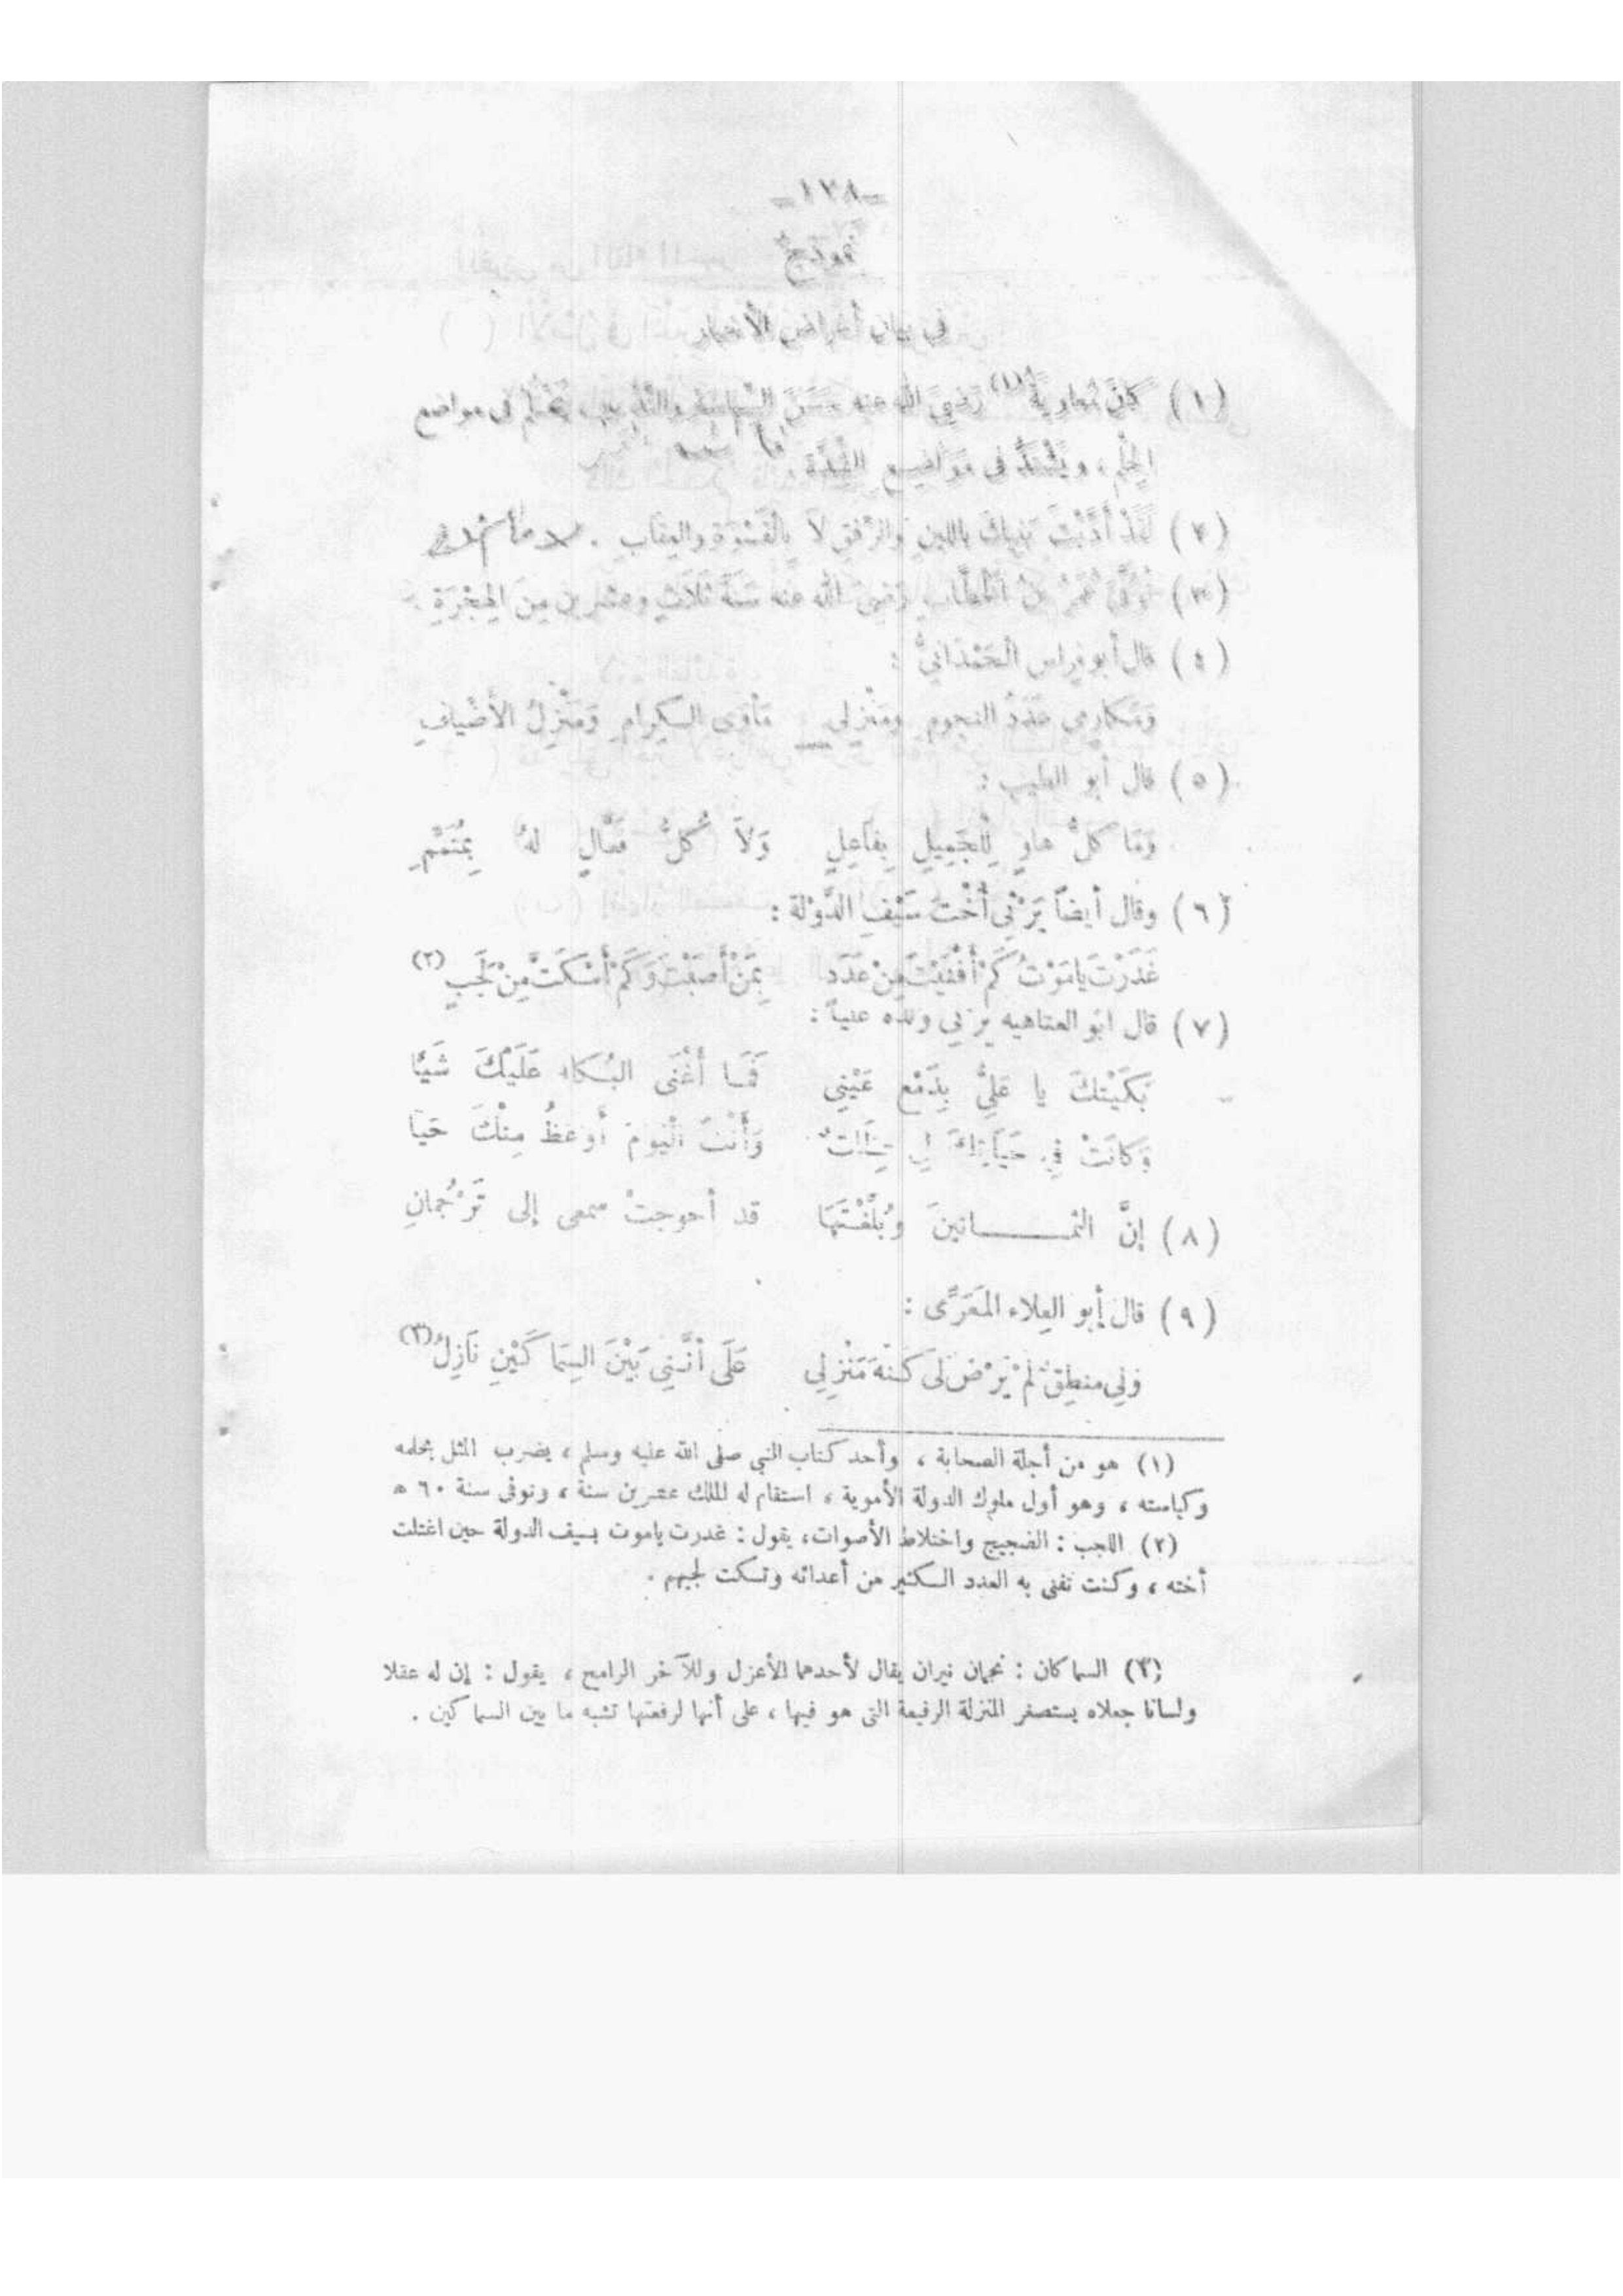 -١٣٨-
نموذج
في بيان أغراض الأخبار
(١) كانَ مُعاوِيةُ(١) رَضِيَ الله عنه حَسَنَ السِّياسةِ والتَّدْبِيرِ يَحْلُمُ في مواضع
الحِلْمِ ، ويَشْتَدُّ في مَوَاضِعِ الشِّدَّةِ .
(٢) لَقَدْ أَدَّبْتَ بَنِيكَ باللينِ والرِّفقِ لاَ بِالقَسْوَةِ والعِقَابِ .
(٣) تُوُفِّيَ عُمَرُ بنُ الخطَّابِ رَضِيَ الله عنهُ سَنَةَ ثَلَاثٍ وعشرين مِنَ الهِجْرَةِ .
(٤) قال أبو فِراس الحَمْدَانيُّ :
وَمَكارِمِي عَدَدُ النجوم ومَنْزِلي مَأوَى الكِرامِ وَمَنْزِلُ الأَضْيَافِ
(٥) قال أبو الطيب :
وَمَا كلُّ هاوٍ لِلْجَمِيلِ بِفَاعِلٍ وَلاَ كُلُّ فَعَّالٍ لهُ بِمُتَمِّمِ
(٦) وقال أيضاً يَرْثي أُخْتَ سَيْفِ الدَّوْلة :
غَدَرْتَ يا مَوْتُ كَمْ أَفْنَيْتَ مِنْ عَدَدِ بِمَنْ أَصَبْتَ وَكَمْ أَسْكَتَّ مِنْ لَجَبِ (٢)
(٧) قال ابو العتاهيه يرثي ولده علياً :
بَكَيْتُكَ يا عَلِيُّ بِدَمْعِ عَيْنِي فَمَا أَغْنَى البُكَاءُ عَلَيْكَ شَيَّا
وَكَانَتْ فِي حَيَاتِكَ لِي عِظَاتٌ وَأَنْتَ الْيَومَ أَوعظُ مِنْكَ حَيا
(٨) إنَّ الثمـــانينَ وَبُلِّغْتَهَا قد أحوجتْ سمعى إلى تَرْجُمانِ
(٩) قال أبو العِلاء المَعَرِّى :
وَلِي منطِقٌ لَمْ يَرْضَ لَى كُنْهَ مَنْزِلِي عَلَى أَنَّنِي بَيْنَ السِمَاكَيْنِ نَازِلُ (٣)
(١) هو من أجلة الصحابة ، وأحد كتاب النبي صلى الله عليه وسلم ، يضرب المثل بحلمه
وكياسته ، وهو أول ملوك الدولة الأموية ، استقام له الملك عشرين سنة ، وتوفى سنة ٦٠ ه
(٢) اللجب : الضجيج واختلاط الأصوات ، يقول : غدرت ياموت بسيف الدولة حين اغتلت
أخته ، وكنت تفنى به العدد الكثير من أعدائه وتسكت لجبهم .
(٣) السماكان : نجمان نيران يقال لأحدهما الأعزل وللآخر الرامح ، يقول : إن له عقلا
ولسانا جعلاه يستصغر المنزلة الرفيعة التى هو فيها ، على أنها لرفعتها تشبه ما بين السماكين .